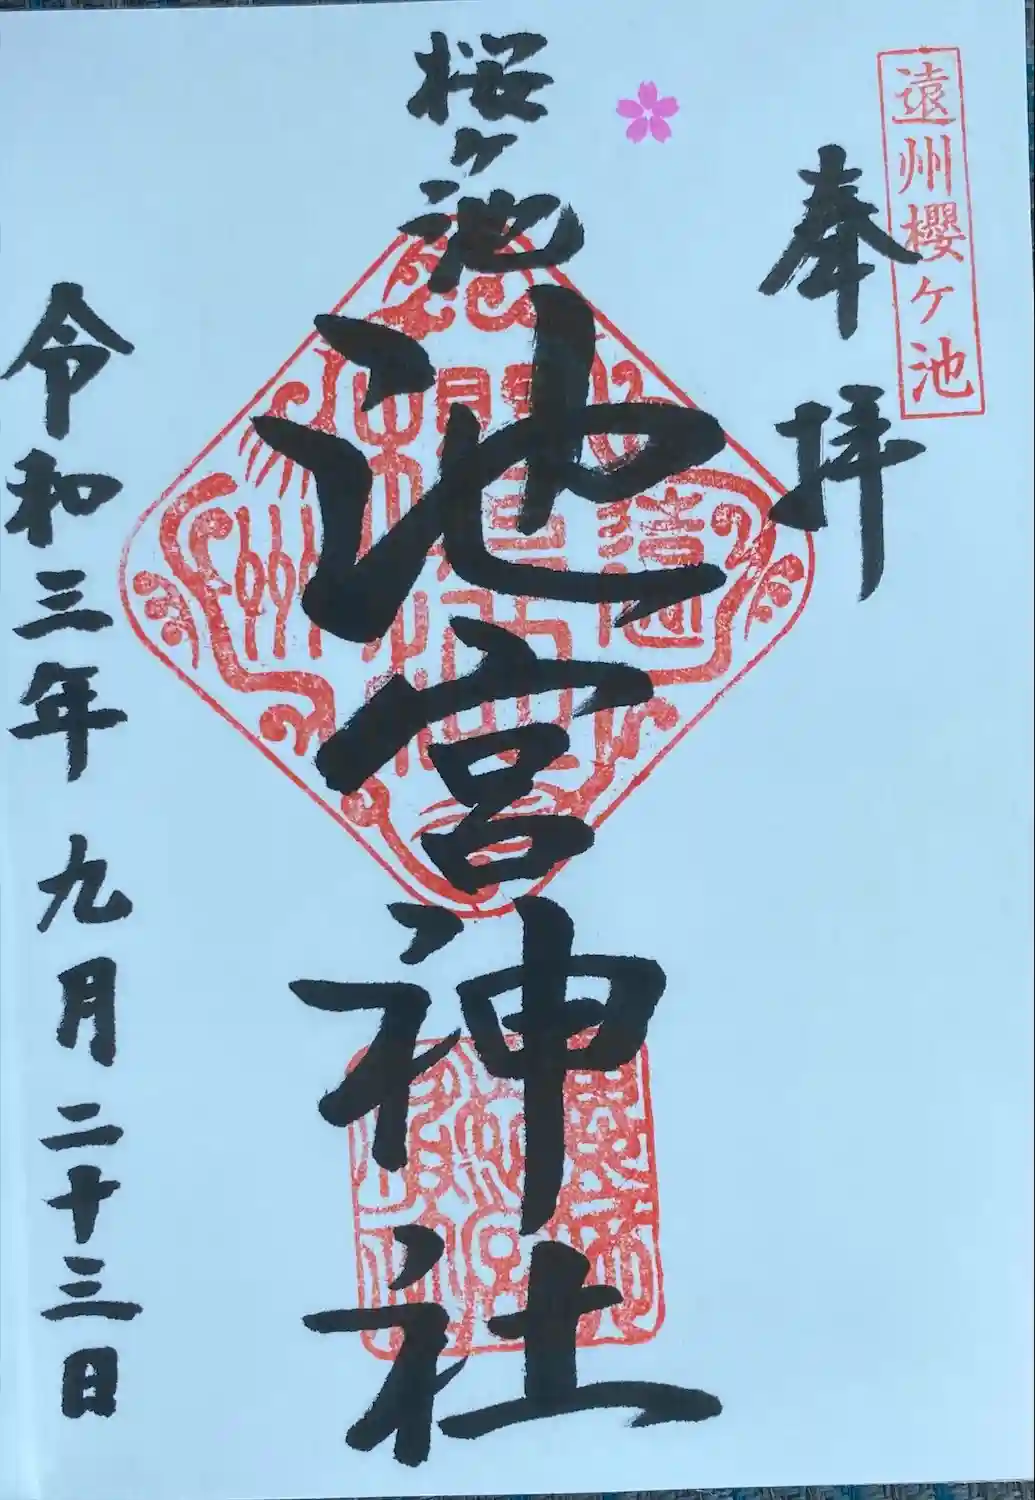 遠州櫻ヶ池
奉拝
桜ヶ池
池宮神社
令和三年九月二十三日